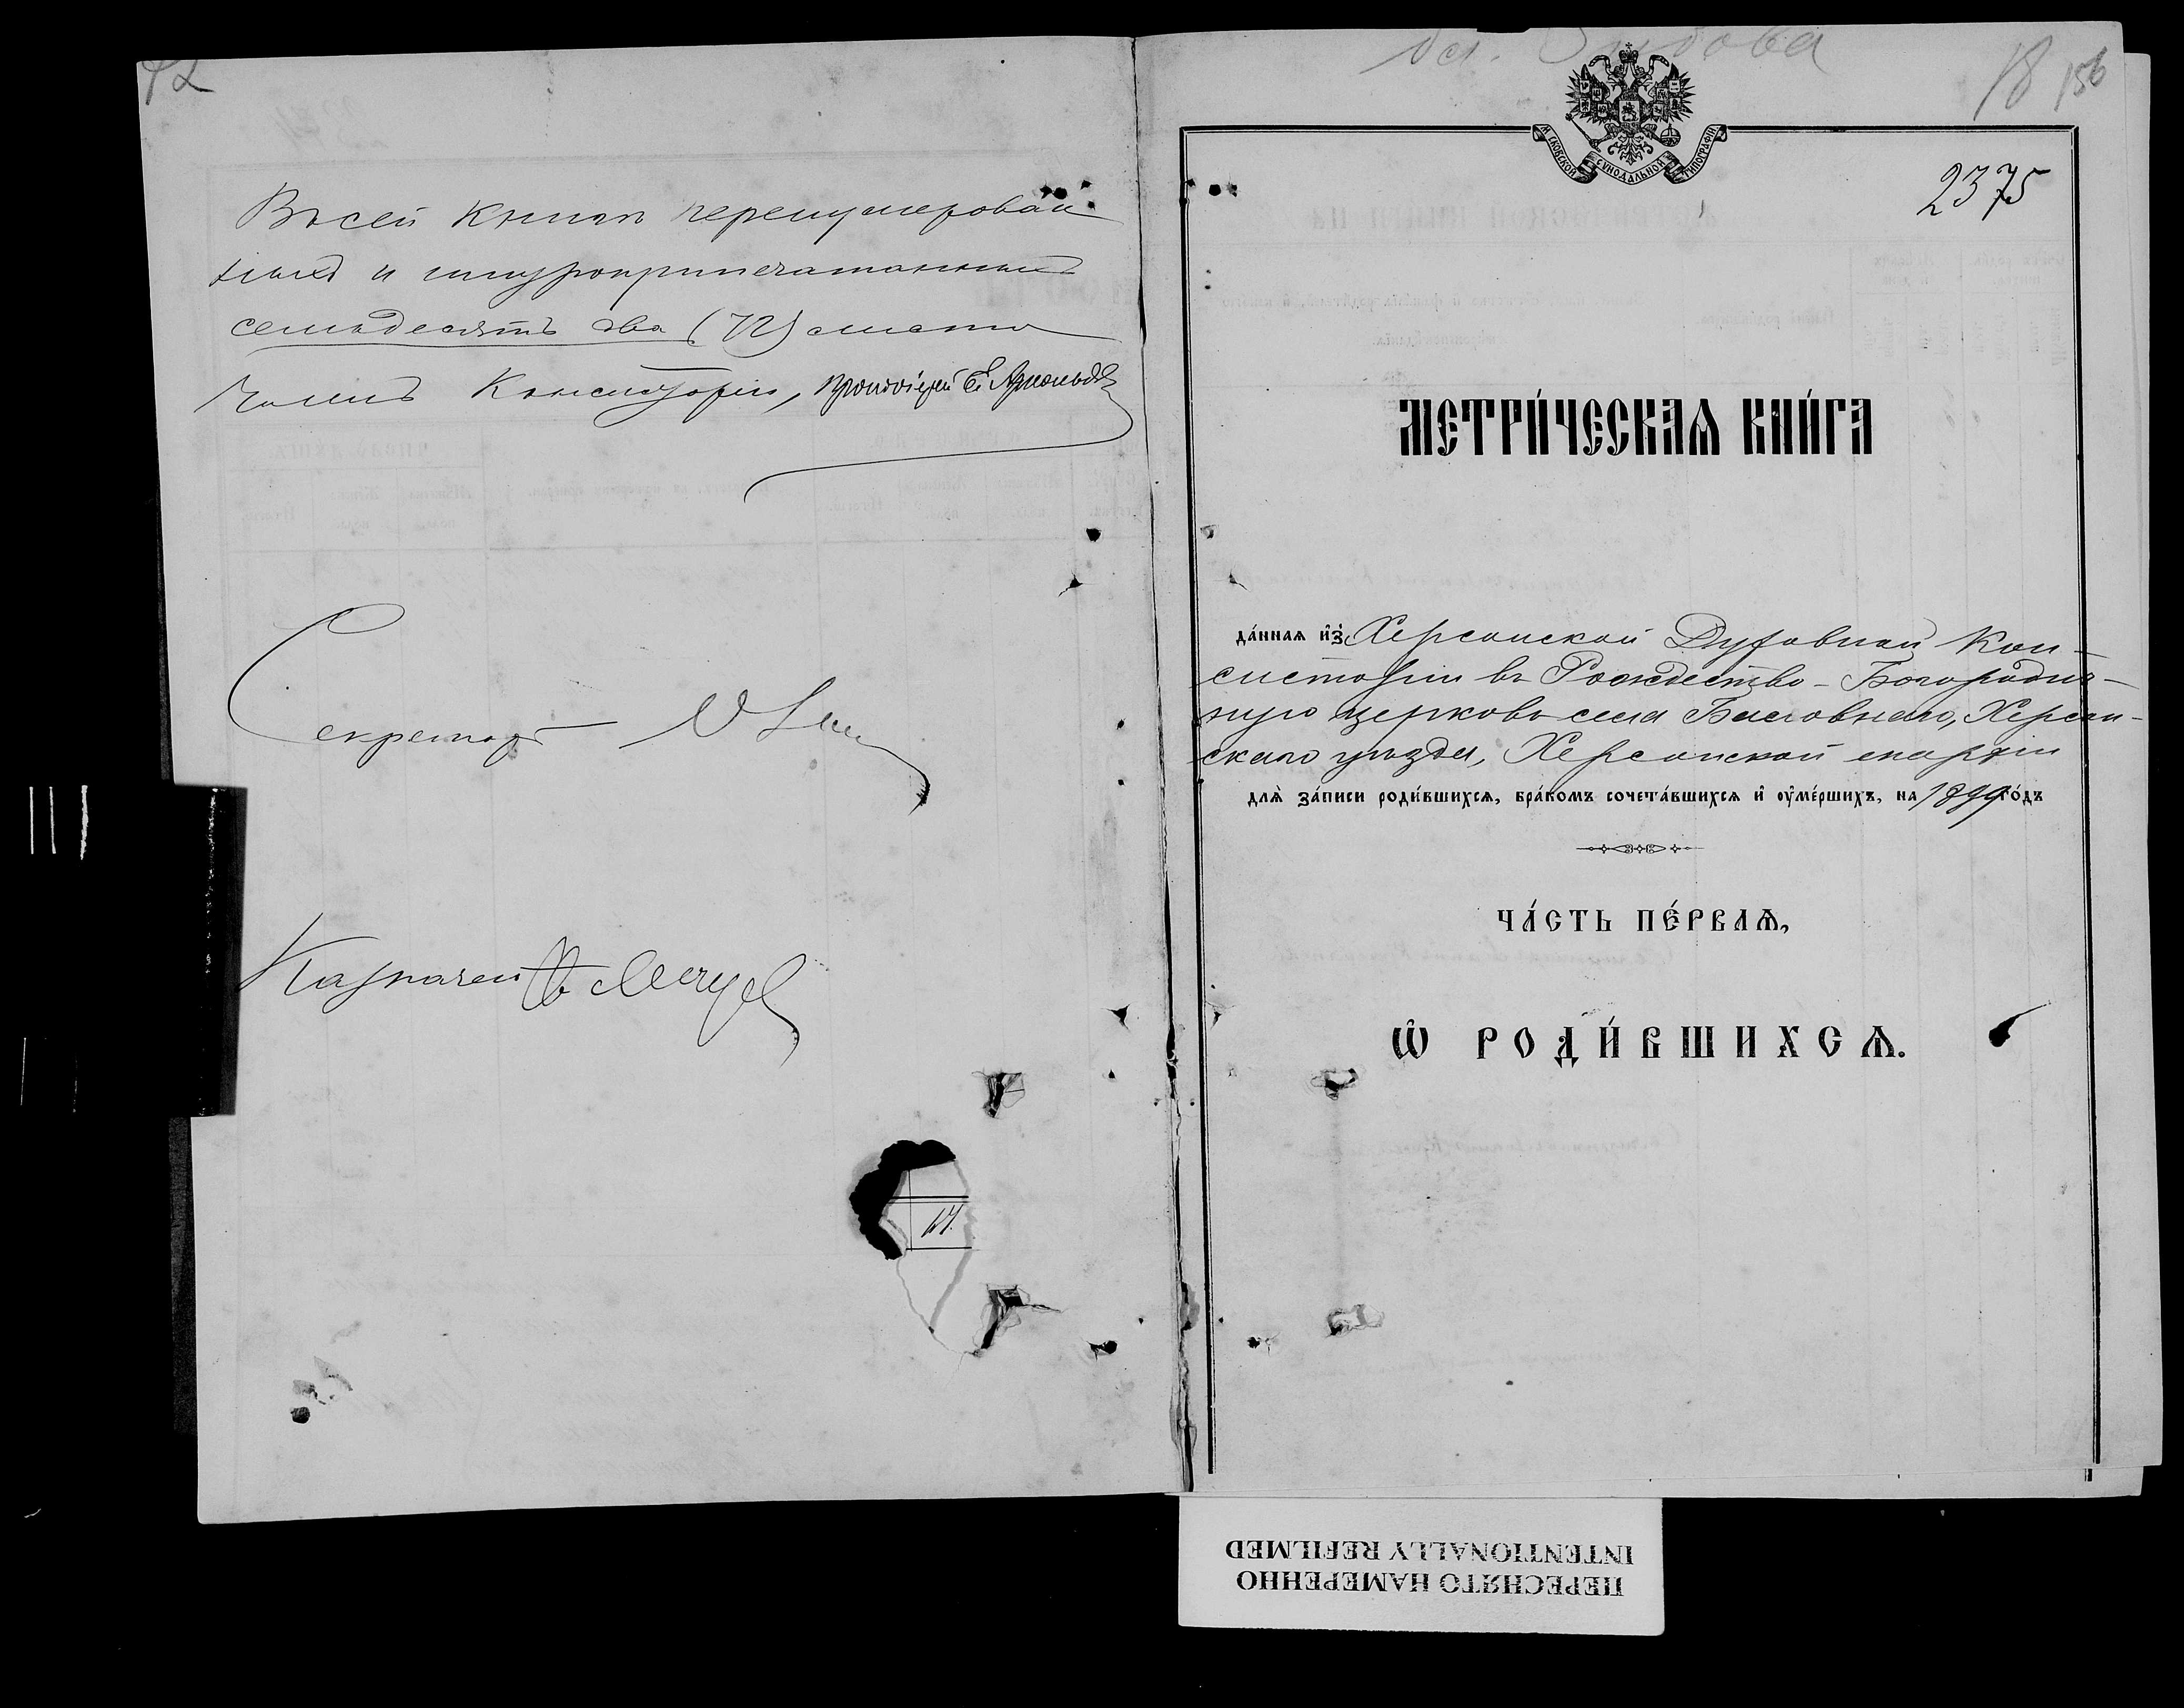 72
Въ сей книгѣ перенумерован
ныхъ и шнуроприпечатанныхъ
семьдесятъ два (72) листа
Членъ Консисторіи, Протоіерей
Секретарь
Казначей
64.
18 156
МОСКОВСКОЙ СѴНОДАЛЬНОЙ ТИПОГРАФІИ
2375
МЕТРИ́ЧЕСКАѦ КНИ́ГА
да́ннаѧ и҆зъ Херсонской Духовной Кон-
систоріи въ Рождество-Богородич-
ную церковь села Херсон-
скаго уѣзда, Херсонской епархіи
длѧ̀ за́писи роди́вшихсѧ, бра́комъ сочета́вшихсѧ и҆ ᲂу҆ме́ршихъ, на 1899 го́дъ
ЧА́СТЬ ПЕ́РВАѦ,
Ѡ҆ РОДИ́ВШИХСѦ.
ПЕРЕСНЯТО НАМЕРЕННО
INTENTIONALLY REFILMED